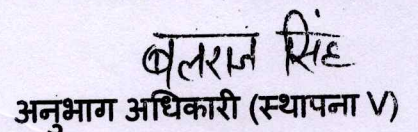 बलराज सिंह
अनुभाग अधिकारी (स्थापना V)